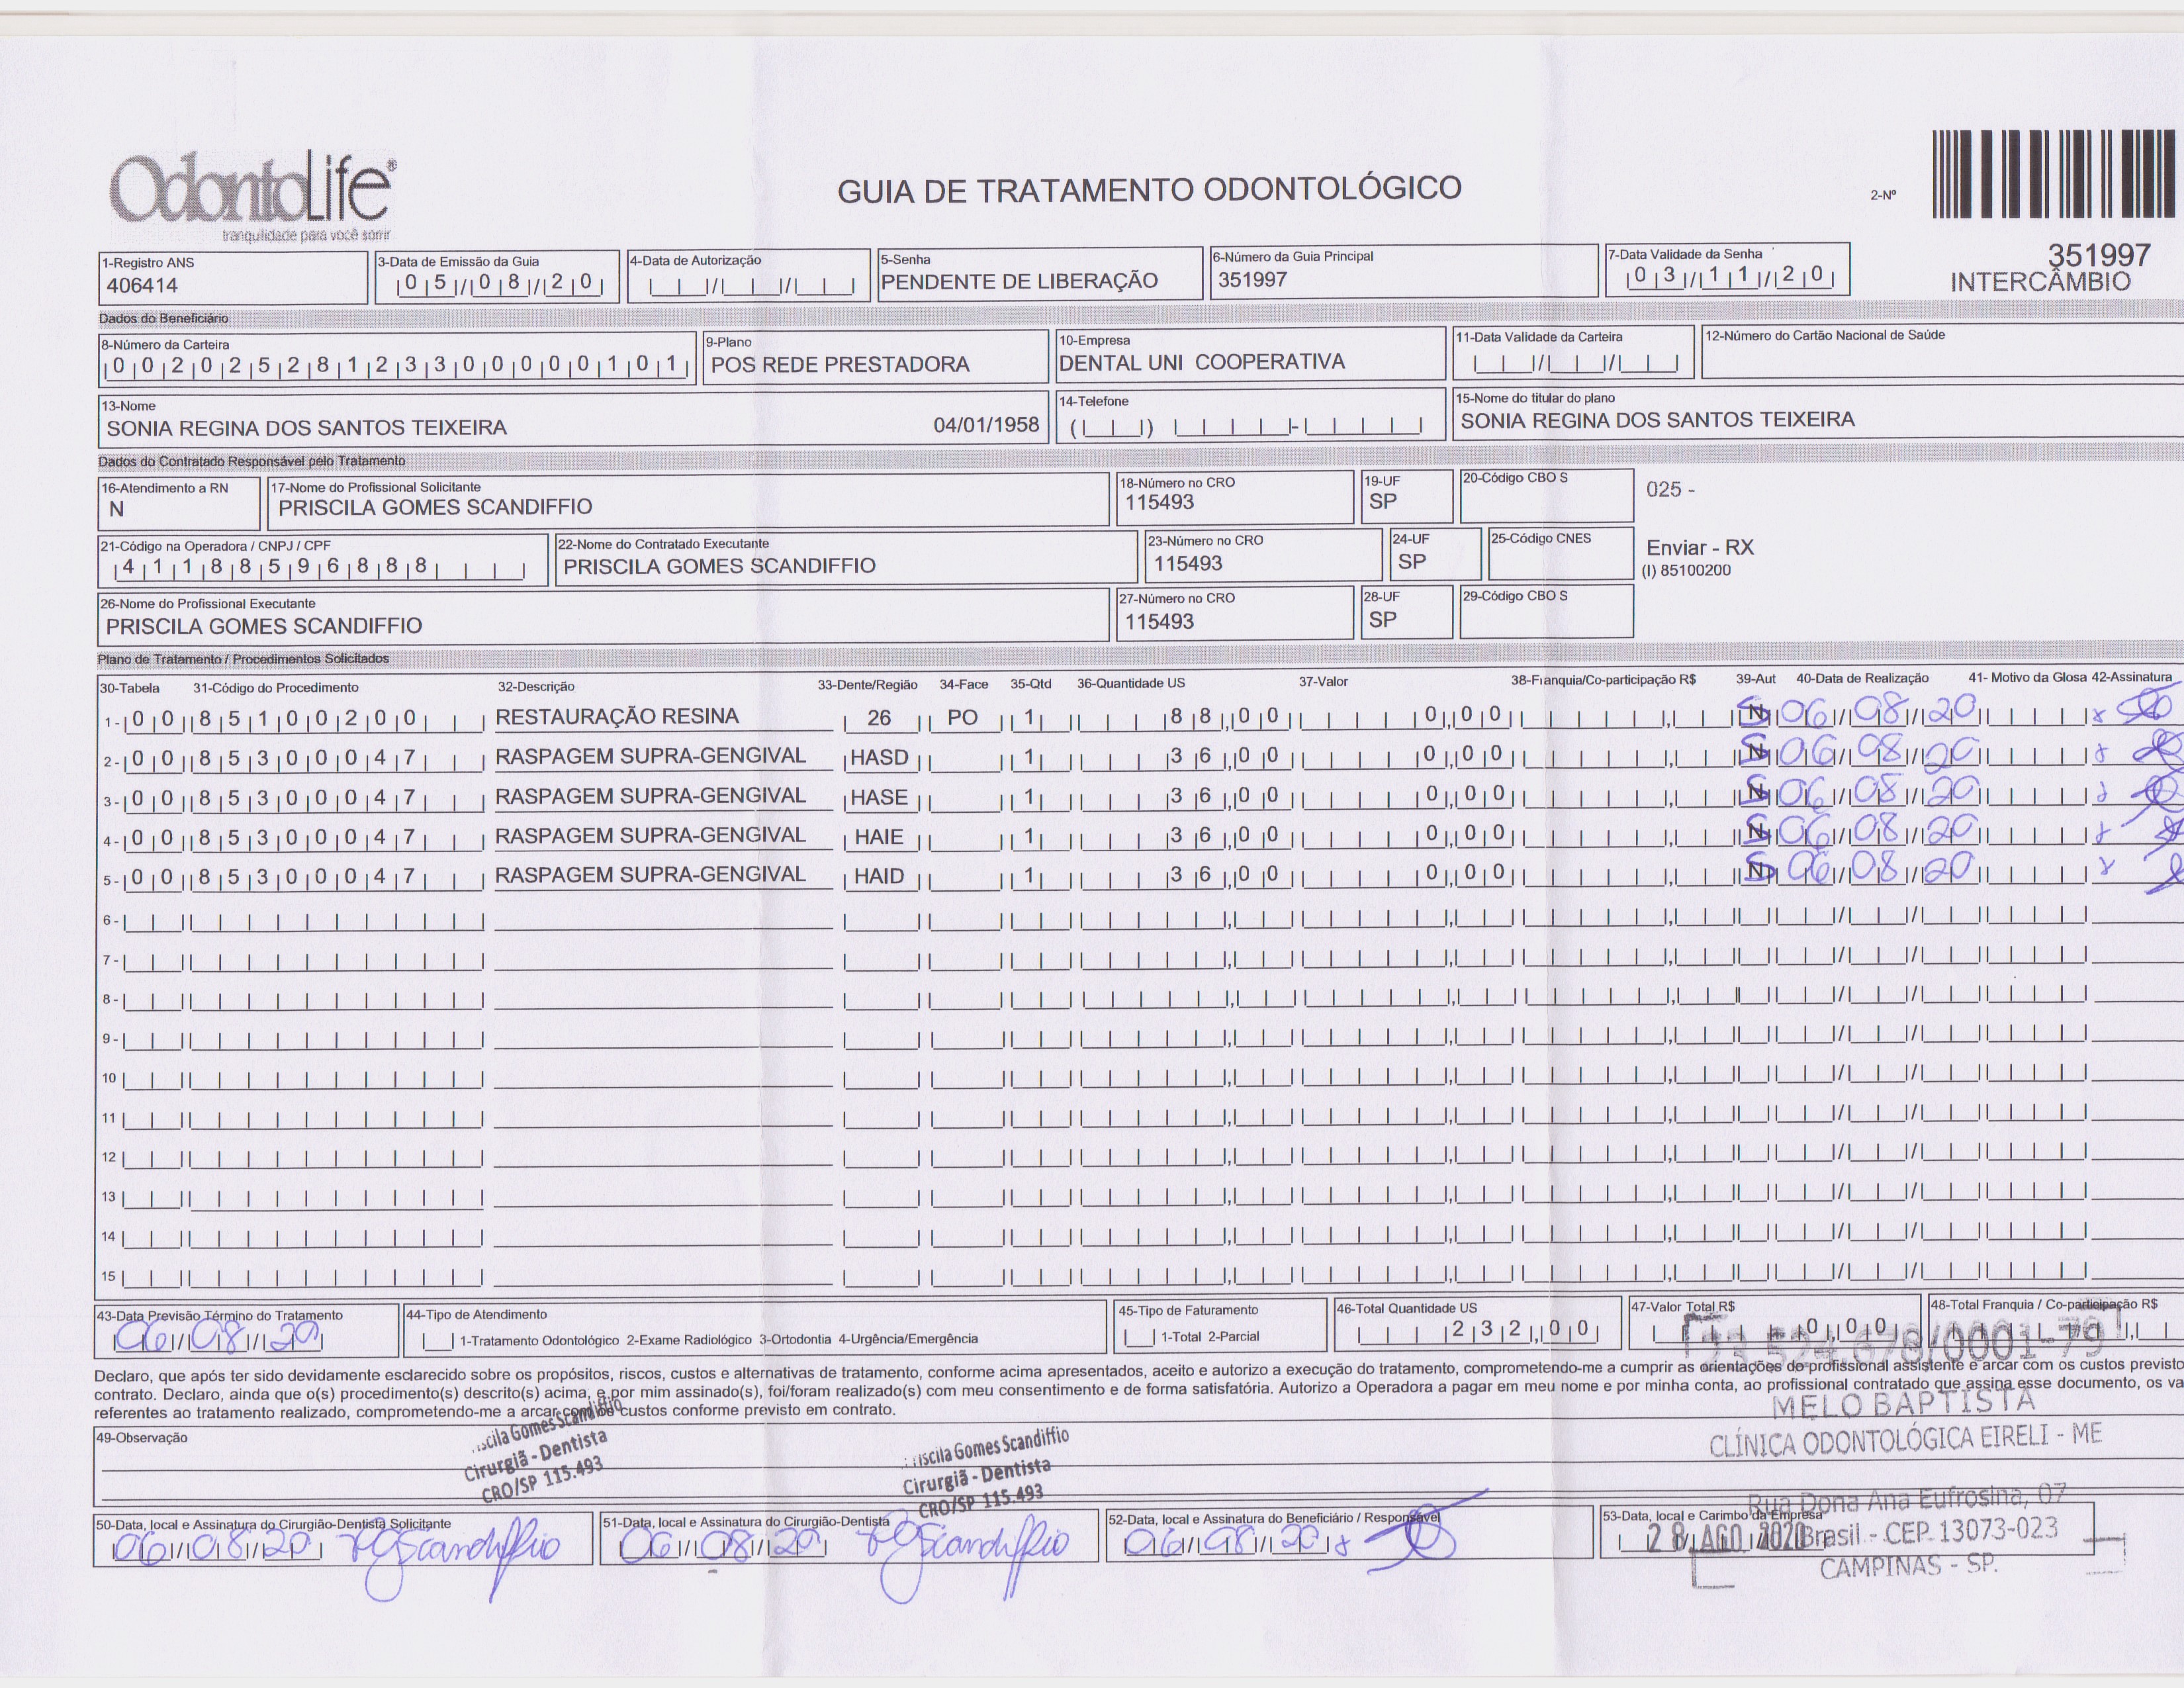 OdontoLife®
tranquilidade para você sorrir
GUIA DE TRATAMENTO ODONTOLÓGICO
2-Nº
351997
INTERCÂMBIO
1-Registro ANS
406414
3-Data de Emissão da Guia
05/08/20
4-Data de Autorização
5-Senha
PENDENTE DE LIBERAÇÃO
6-Número da Guia Principal
351997
7-Data Validade da Senha
03/11/20
Dados do Beneficiário
8-Número da Carteira
00202528123300000101
9-Plano
POS REDE PRESTADORA
10-Empresa
DENTAL UNI COOPERATIVA
11-Data Validade da Carteira
12-Número do Cartão Nacional de Saúde
13-Nome
SONIA REGINA DOS SANTOS TEIXEIRA 04/01/1958
14-Telefone
15-Nome do titular do plano
SONIA REGINA DOS SANTOS TEIXEIRA
Dados do Contratado Responsável pelo Tratamento
16-Atendimento a RN
N
17-Nome do Profissional Solicitante
PRISCILA GOMES SCANDIFFIO
18-Número no CRO
115493
19-UF
SP
20-Código CBO S
025 -
21-Código na Operadora / CNPJ / CPF
41188596888
22-Nome do Contratado Executante
PRISCILA GOMES SCANDIFFIO
23-Número no CRO
115493
24-UF
SP
25-Código CNES
Enviar - RX
(I) 85100200
26-Nome do Profissional Executante
PRISCILA GOMES SCANDIFFIO
27-Número no CRO
115493
28-UF
SP
29-Código CBO S
Plano de Tratamento / Procedimentos Solicitados
30-Tabela 31-Código do Procedimento 32-Descrição 33-Dente/Região 34-Face 35-Qtd 36-Quantidade US 37-Valor 38-Franquia/Co-participação R$ 39-Aut 40-Data de Realização 41- Motivo da Glosa 42-Assinatura
1- 00 85100200 RESTAURAÇÃO RESINA 26 PO 1 88,00 0,00 S 06/08/20
2- 00 85300047 RASPAGEM SUPRA-GENGIVAL HASD 1 36,00 0,00 S 06/08/20
3- 00 85300047 RASPAGEM SUPRA-GENGIVAL HASE 1 36,00 0,00 S 06/08/20
4- 00 85300047 RASPAGEM SUPRA-GENGIVAL HAIE 1 36,00 0,00 S 06/08/20
5- 00 85300047 RASPAGEM SUPRA-GENGIVAL HAID 1 36,00 0,00 S 06/08/20
6-
7-
8-
9-
10
11
12
13
14
15
43-Data Previsão Término do Tratamento
06/08/20
44-Tipo de Atendimento
1-Tratamento Odontológico 2-Exame Radiológico 3-Ortodontia 4-Urgência/Emergência
45-Tipo de Faturamento
1-Total 2-Parcial
46-Total Quantidade US
232,00
47-Valor Total R$
0,00
48-Total Franquia / Co-participação R$
.524.678/0001-79
Declaro, que após ter sido devidamente esclarecido sobre os propósitos, riscos, custos e alternativas de tratamento, conforme acima apresentados, aceito e autorizo a execução do tratamento, comprometendo-me a cumprir as orientações do profissional assistente e arcar com os custos previsto
contrato. Declaro, ainda que o(s) procedimento(s) descrito(s) acima, e por mim assinado(s), foi/foram realizado(s) com meu consentimento e de forma satisfatória. Autorizo a Operadora a pagar em meu nome e por minha conta, ao profissional contratado que assina esse documento, os va
referentes ao tratamento realizado, comprometendo-me a arcar com os custos conforme previsto em contrato.
MELO BAPTISTA
CLÍNICA ODONTOLÓGICA EIRELI - ME
49-Observação
scila Gomes Scandiffio
Cirurgiã - Dentista
CRO/SP 115.493
iscila Gomes Scandiffio
Cirurgiã - Dentista
CRO/SP 115.493
Rua Dona Ana Eufrosina, 07
50-Data, local e Assinatura do Cirurgião-Dentista Solicitante
06/08/20 PGScandiffio
51-Data, local e Assinatura do Cirurgião-Dentista
06/08/20 PGScandiffio
52-Data, local e Assinatura do Beneficiário / Responsável
06/08/20
53-Data, local e Carimbo da Empresa
28 AGO 2020
Brasil - CEP 13073-023
CAMPINAS - SP.